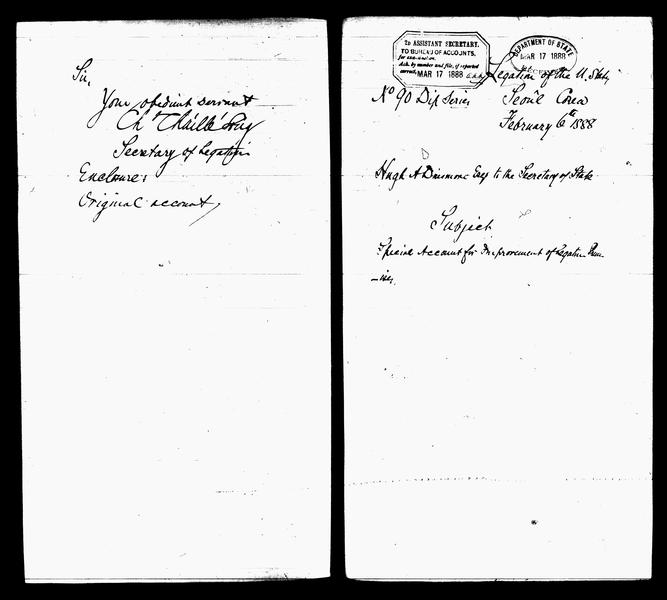 Sir,
Your obedient servant
Ch Chaillé Long
Secretary of Legation
Enclosure:
Original account,
To ASSISTANT SECRETARY.
TO BUREAU OF ACCOUNTS.
for examination.
Ack. by number and file, if reported
correct. MAR 17 1888
DEPARTMENT OF STATE
MAR 17 1888
Legation of the U. States
No 90 Dip Series
Seoul Corea
February 6th 1888
Hugh A Dinsmore Esq to the Secretary of State
Subject
Special Account for Improvement of Legation Prem-
-ises,